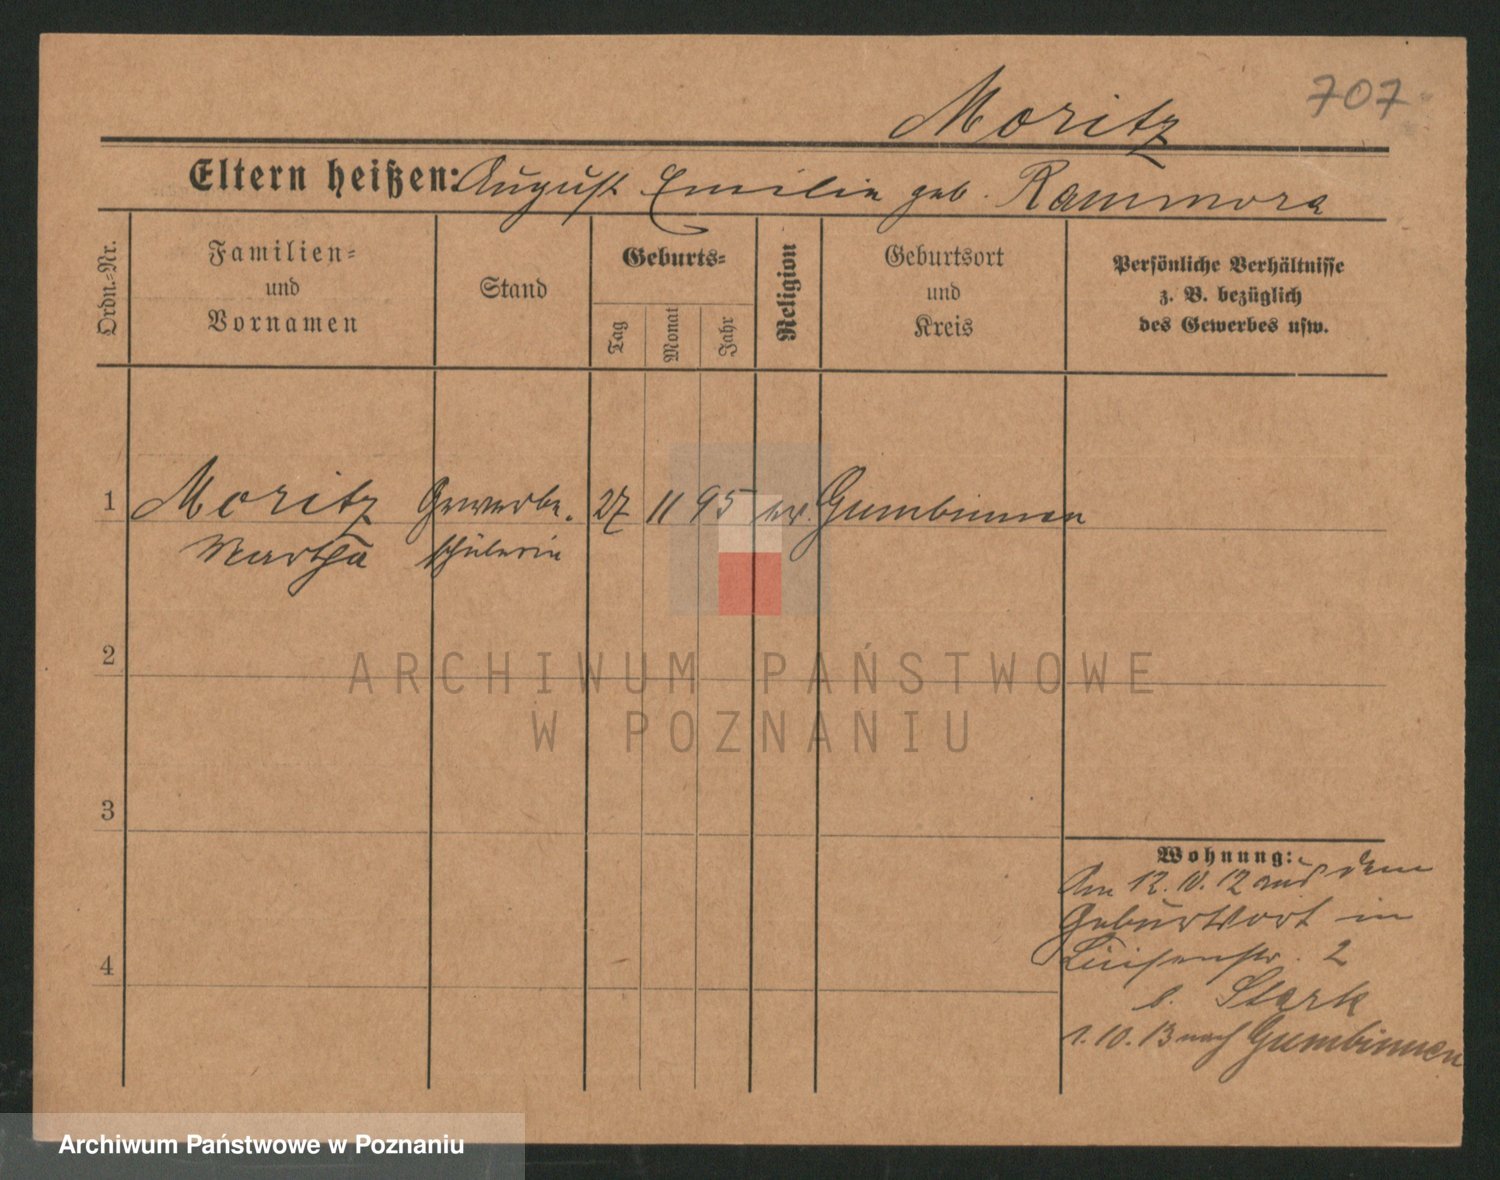 707
Moritz
Eltern heißen: August Emilie geb. Rammora
Ordn.=Nr.
Familien=
und
Vornamen
Stand
Geburts=
Tag
Monat
Jahr
Religion
Geburtsort
und
Kreis
Persönliche Verhältnisse
z. B. bezüglich
des Gewerbes usw.
1 Moritz Gewerbe- 27 11 95 ev. Gumbinnen
Martha schülerin
2
3
4
Wohnung:
Am 12. IV. 12 aus dem
Geburtsort in
Luisenstr. 2
b. Stark
1. 10. 13 nach Gumbinnen
ARCHIWUM PAŃSTWOWE
W POZNANIU
Archiwum Państwowe w Poznaniu